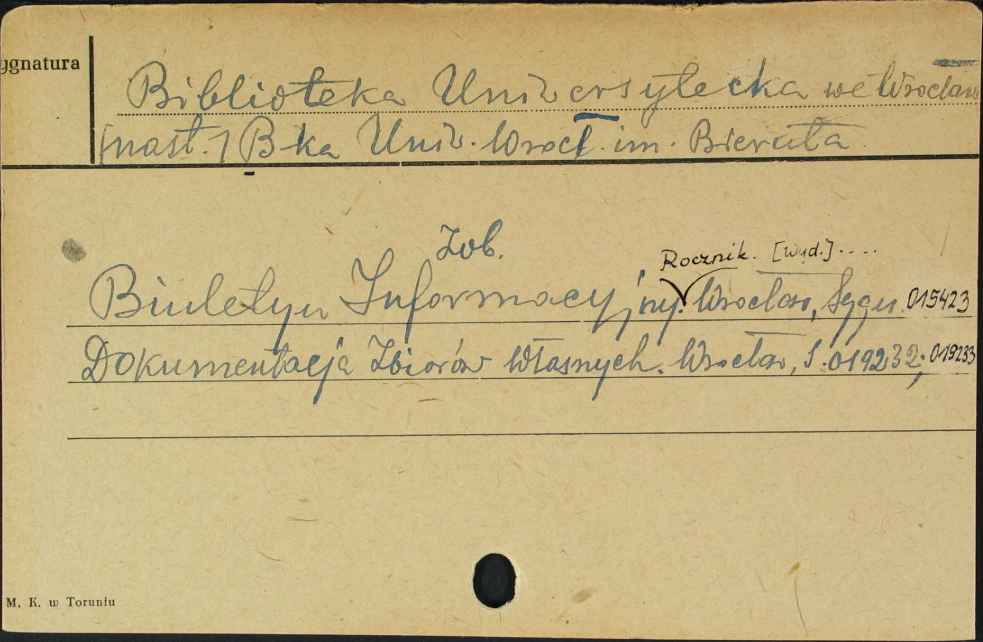 ygnatura
Biblioteka Uniwersytecka we Wrocław
[nast.] B-ka Uniw. Wrocł. im. Bieruta
Zob.
Rocznik. [wyd.]....
Biuletyn Informacyjny. Wrocław, Sygn. 015423
Dokumentacja Zbiorów Własnych. Wrocław, S. 019232; 019233
M. K. w Toruniu